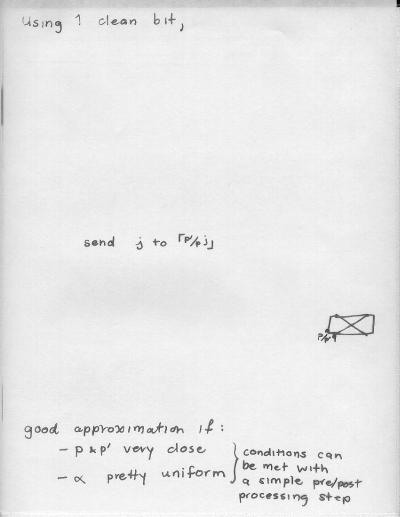 Using 1 clean bit,
send j to ⌈p'/p j⌋
good approximation if:
- p & p' very close
- α pretty uniform
conditions can
be met with
a simple pre/post
processing step